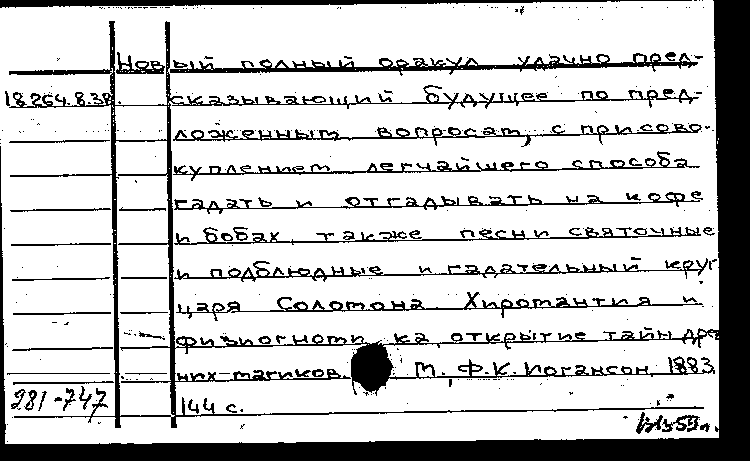 Новый полный оракул удачно пред-
18.264.8.38. сказывающий будущее по пред-
ложенным вопросам, с присово-
куплением легчайшего способа
гадать и отгадывать на кофе
и бобах, также песни святочные
и подблюдные и гадательный круг
царя Соломона Хиромантия и
физиогноми ка, открытие тайн древ
них магиков. М., Ф.К. Иогансон, 1883
281-747 144 с.